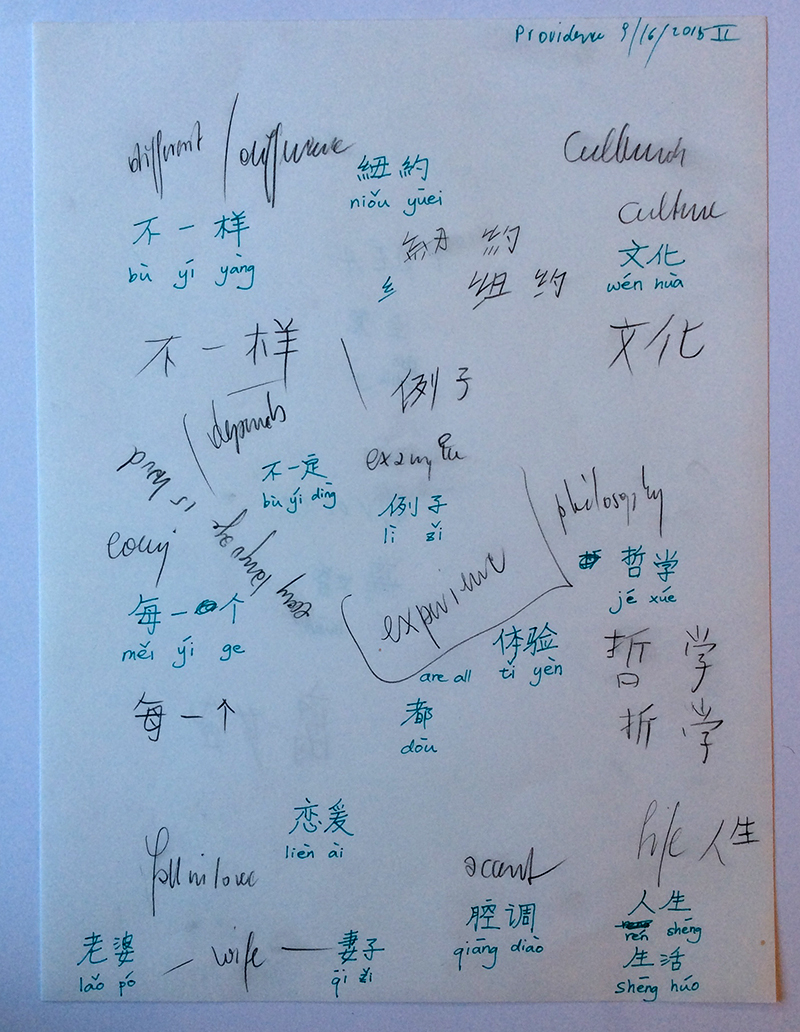 Providence 9/16/2015 II
different / difference
紐約
niǒu yūei
Cultured
culture
不一样
bù yí yàng
紐 約
纟 纽 约
文化
wén huà
不一样
文化
例子
depends
example
is hard
不一定
bù yí dìng
例子
lì zǐ
philosophy
every
every language
experience
哲学
jé xúe
每一个
měi yí ge
体验
are all tǐ yèn
哲 学
每一个
都
dōu
折 学
恋爱
lièn ài
fall in love
accent
life 人生
腔调
qiāng diào
人生
rén shēng
老婆
lǎo pó
wife
妻子
qī zǐ
生活
shēng húo